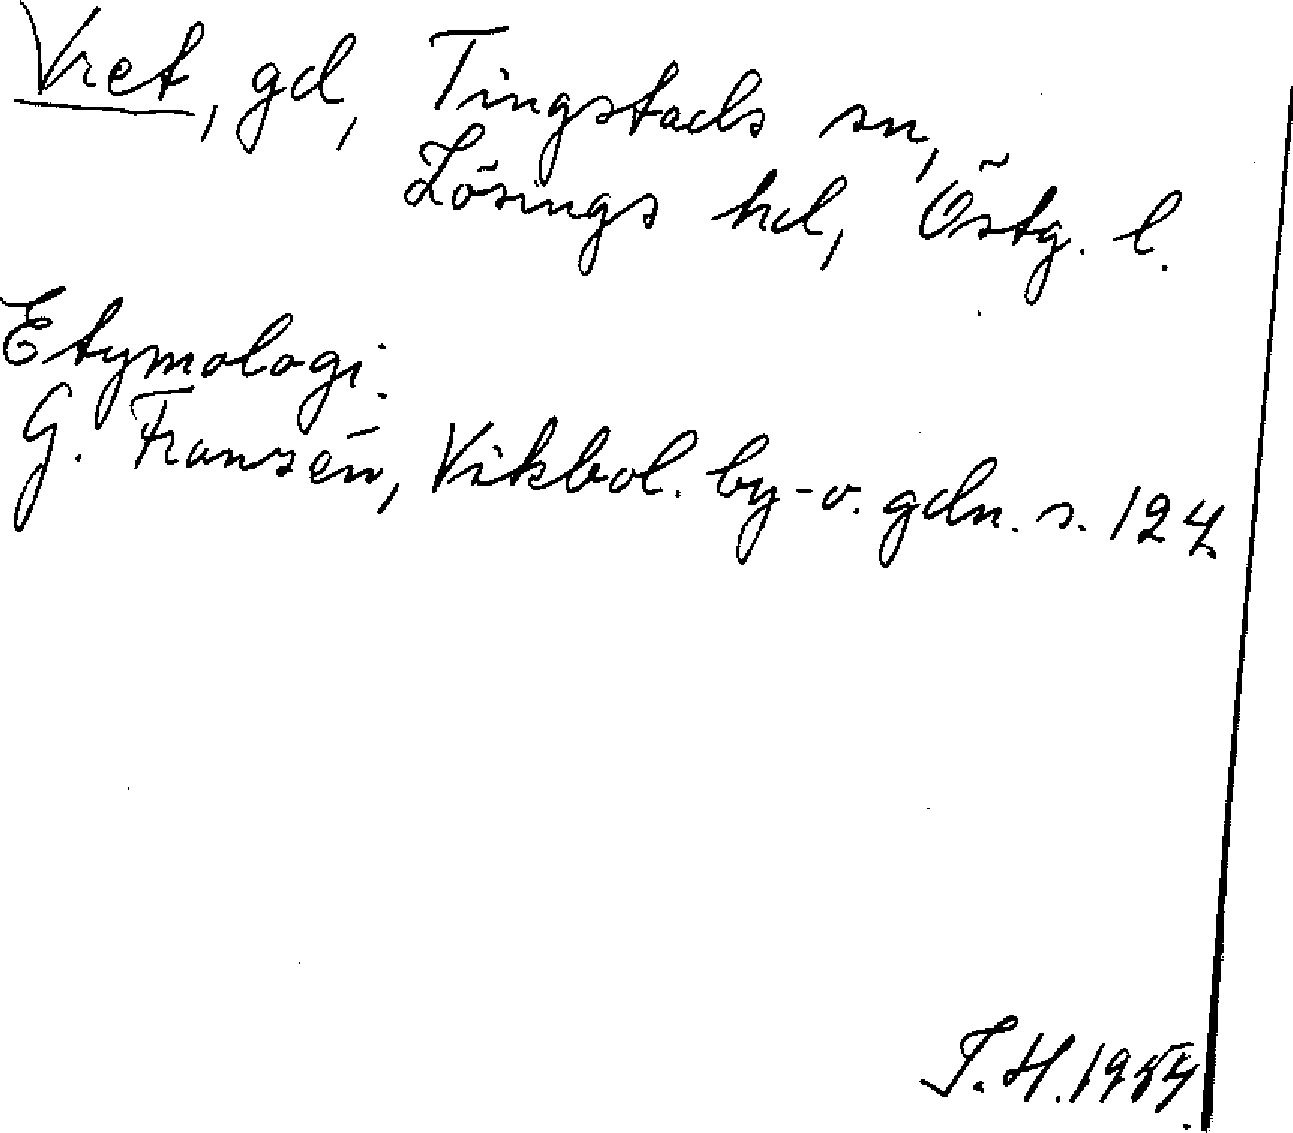 Vret, gd, Tingstads sn,
Lösings hd, Östg. l.
Etymologi.
G. Franzén, Vikbol. by- o. gdn. s. 124
T. H. 1954.